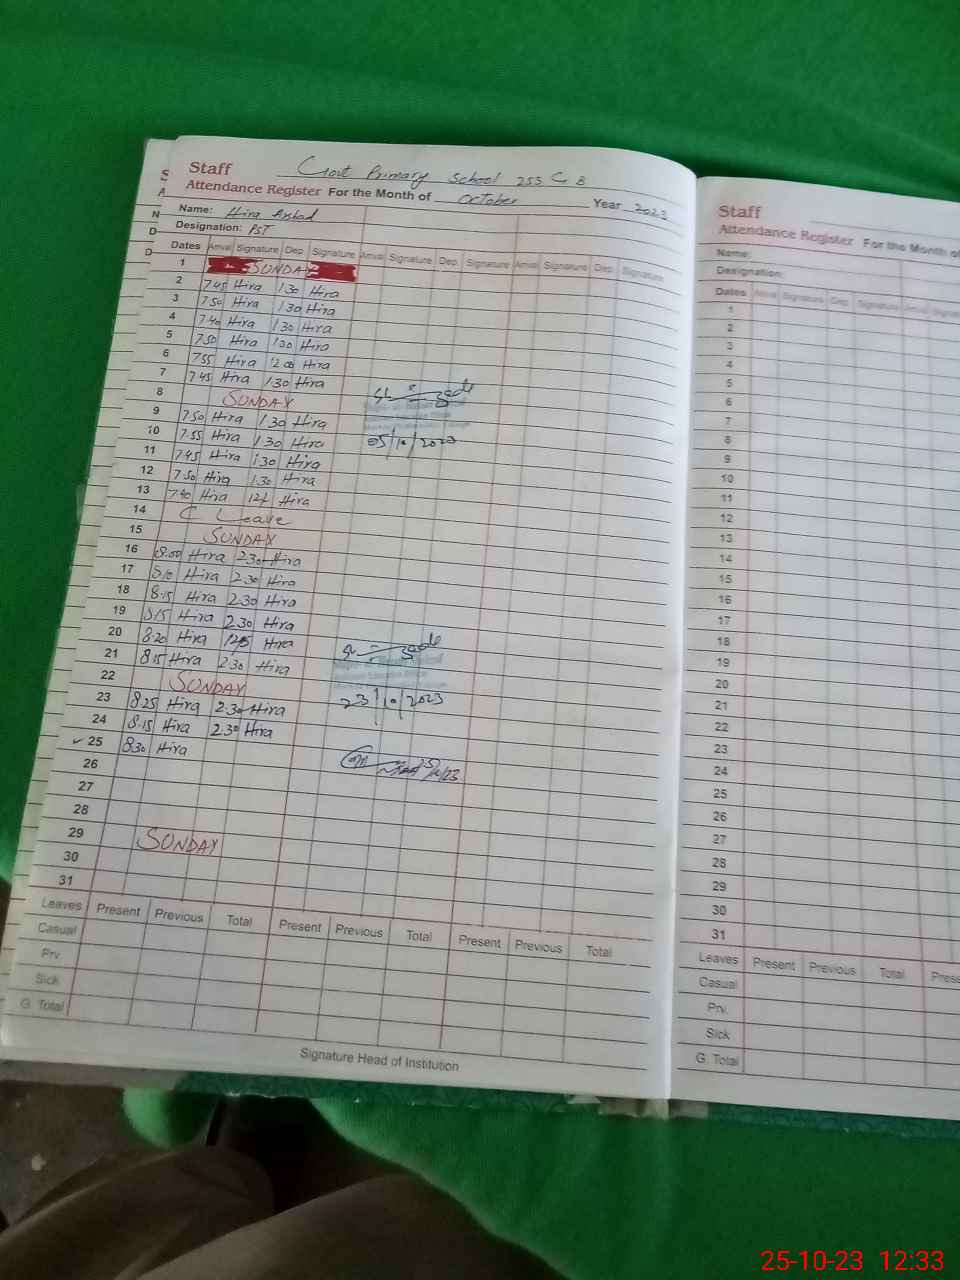 Staff Govt Primary School 253 G B
Attendance Register For the Month of October Year 2023
Name: Hira Arshad
Designation: PST
Dates Arrival Signature Dep. Signature Arrival Signature Dep. Signature Arrival Signature Dep. Signature
1 SUNDAY
2 7.45 Hira 1.30 Hira
3 7.50 Hira 1.30 Hira
4 7.40 Hira 1.30 Hira
5 7.50 Hira 1.30 Hira
6 7.55 Hira 12.00 Hira
7 7.45 Hira 1.30 Hira
8 SUNDAY
9 7.50 Hira 1.30 Hira
10 7.55 Hira 1.30 Hira
05/10/2023
11 7.45 Hira 1.30 Hira
12 7.50 Hira 1.30 Hira
13 7.40 Hira Hira
14 C Leave
15 SUNDAY
16 8.00 Hira 2.30 Hira
17 8.10 Hira 2.30 Hira
18 8.15 Hira 2.30 Hira
19 8.15 Hira 2.30 Hira
20 8.20 Hira Hira
21 8.15 Hira 2.30 Hira
22 SUNDAY
23 8.25 Hira 2.30 Hira
23/10/2023
24 8.15 Hira 2.30 Hira
✓ 25 8.30 Hira
26
27
28
29 SUNDAY
30
31
Leaves Present Previous Total Present Previous Total Present Previous Total
Casual
Prv.
Sick
G. Total
Signature Head of Institution
Staff
Attendance Register For the Month of
Name:
Designation:
Dates Arrival Signature Dep. Signature Arrival
1
2
3
4
5
6
7
8
9
10
11
12
13
14
15
16
17
18
19
20
21
22
23
24
25
26
27
28
29
30
31
Leaves Present Previous Total
Casual
Prv.
Sick
G. Total
25-10-23 12:33